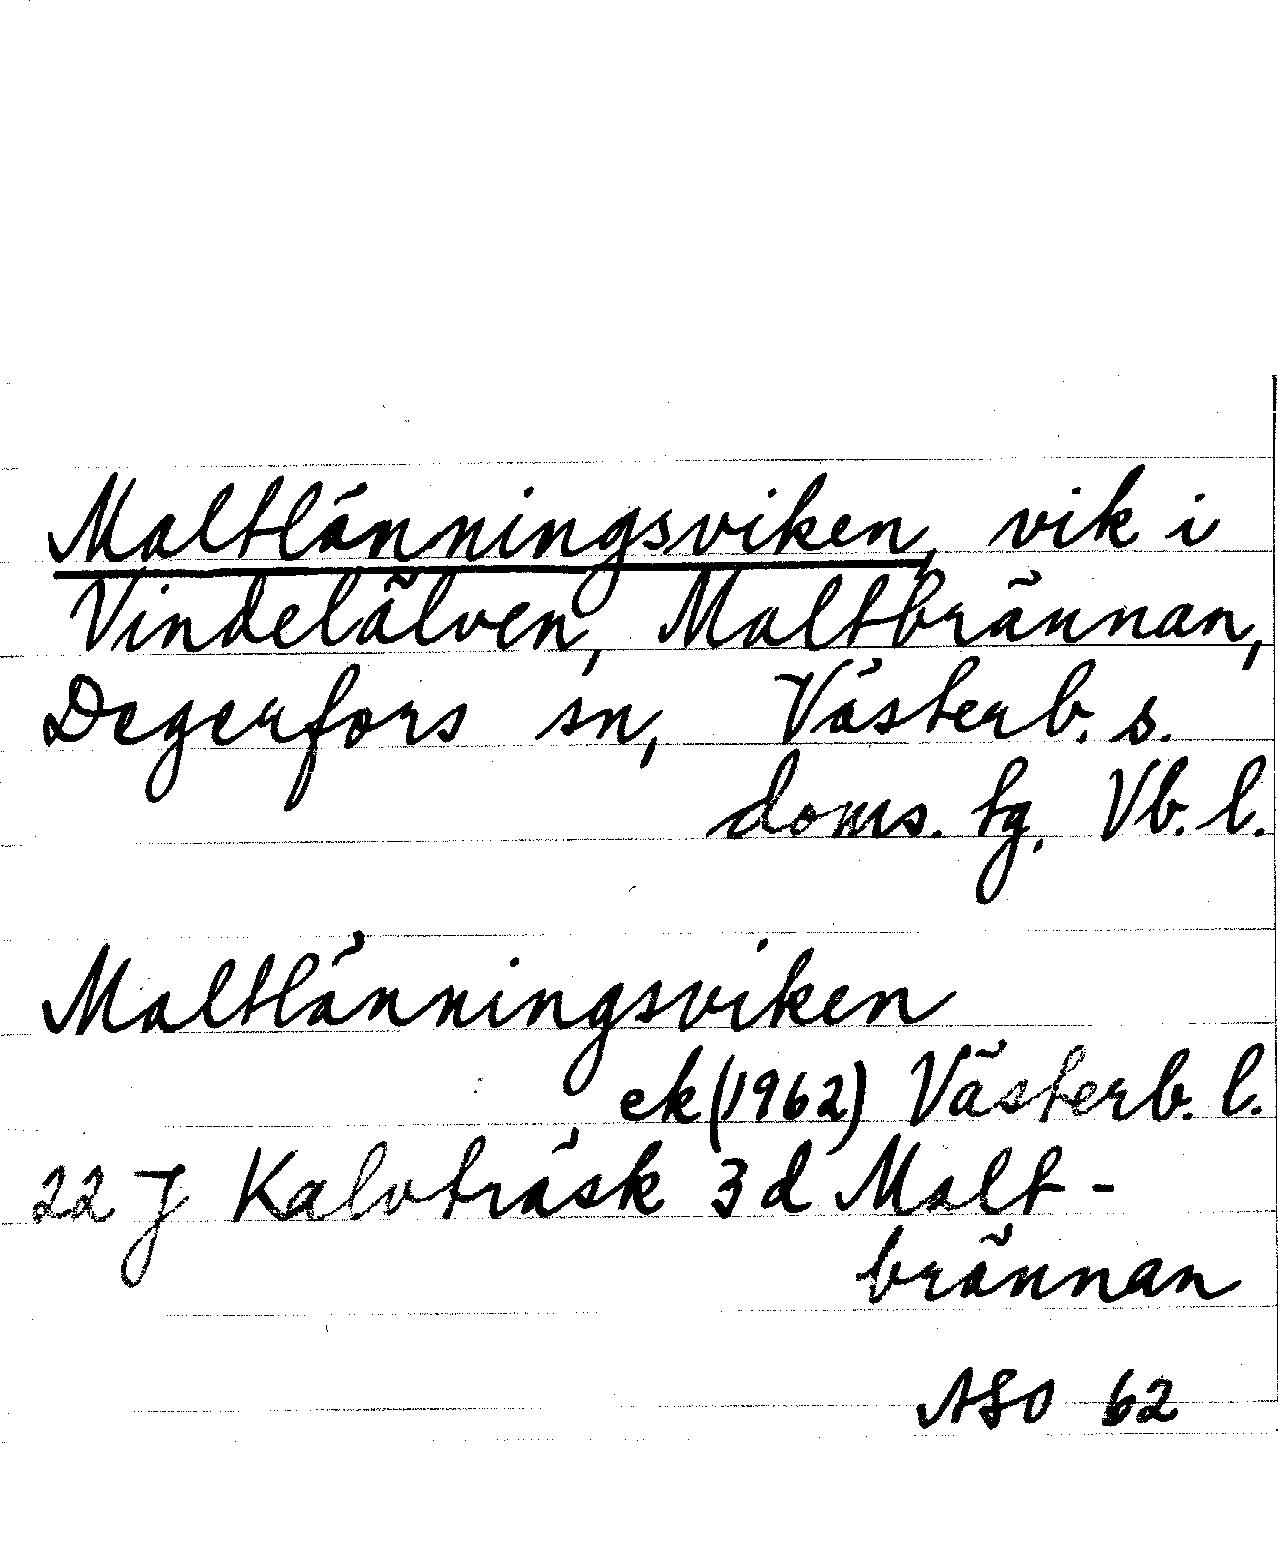 Maltlänningsviken, vik i
Vindelälven, Maltbrännan,
Degerfors sn, Västerb. s.
doms. tg. Vb. l.
Maltlänningsviken
ek (1962) Västerb. l.
22 J Kalvträsk 3 d Malt-
brännan
ASO 62